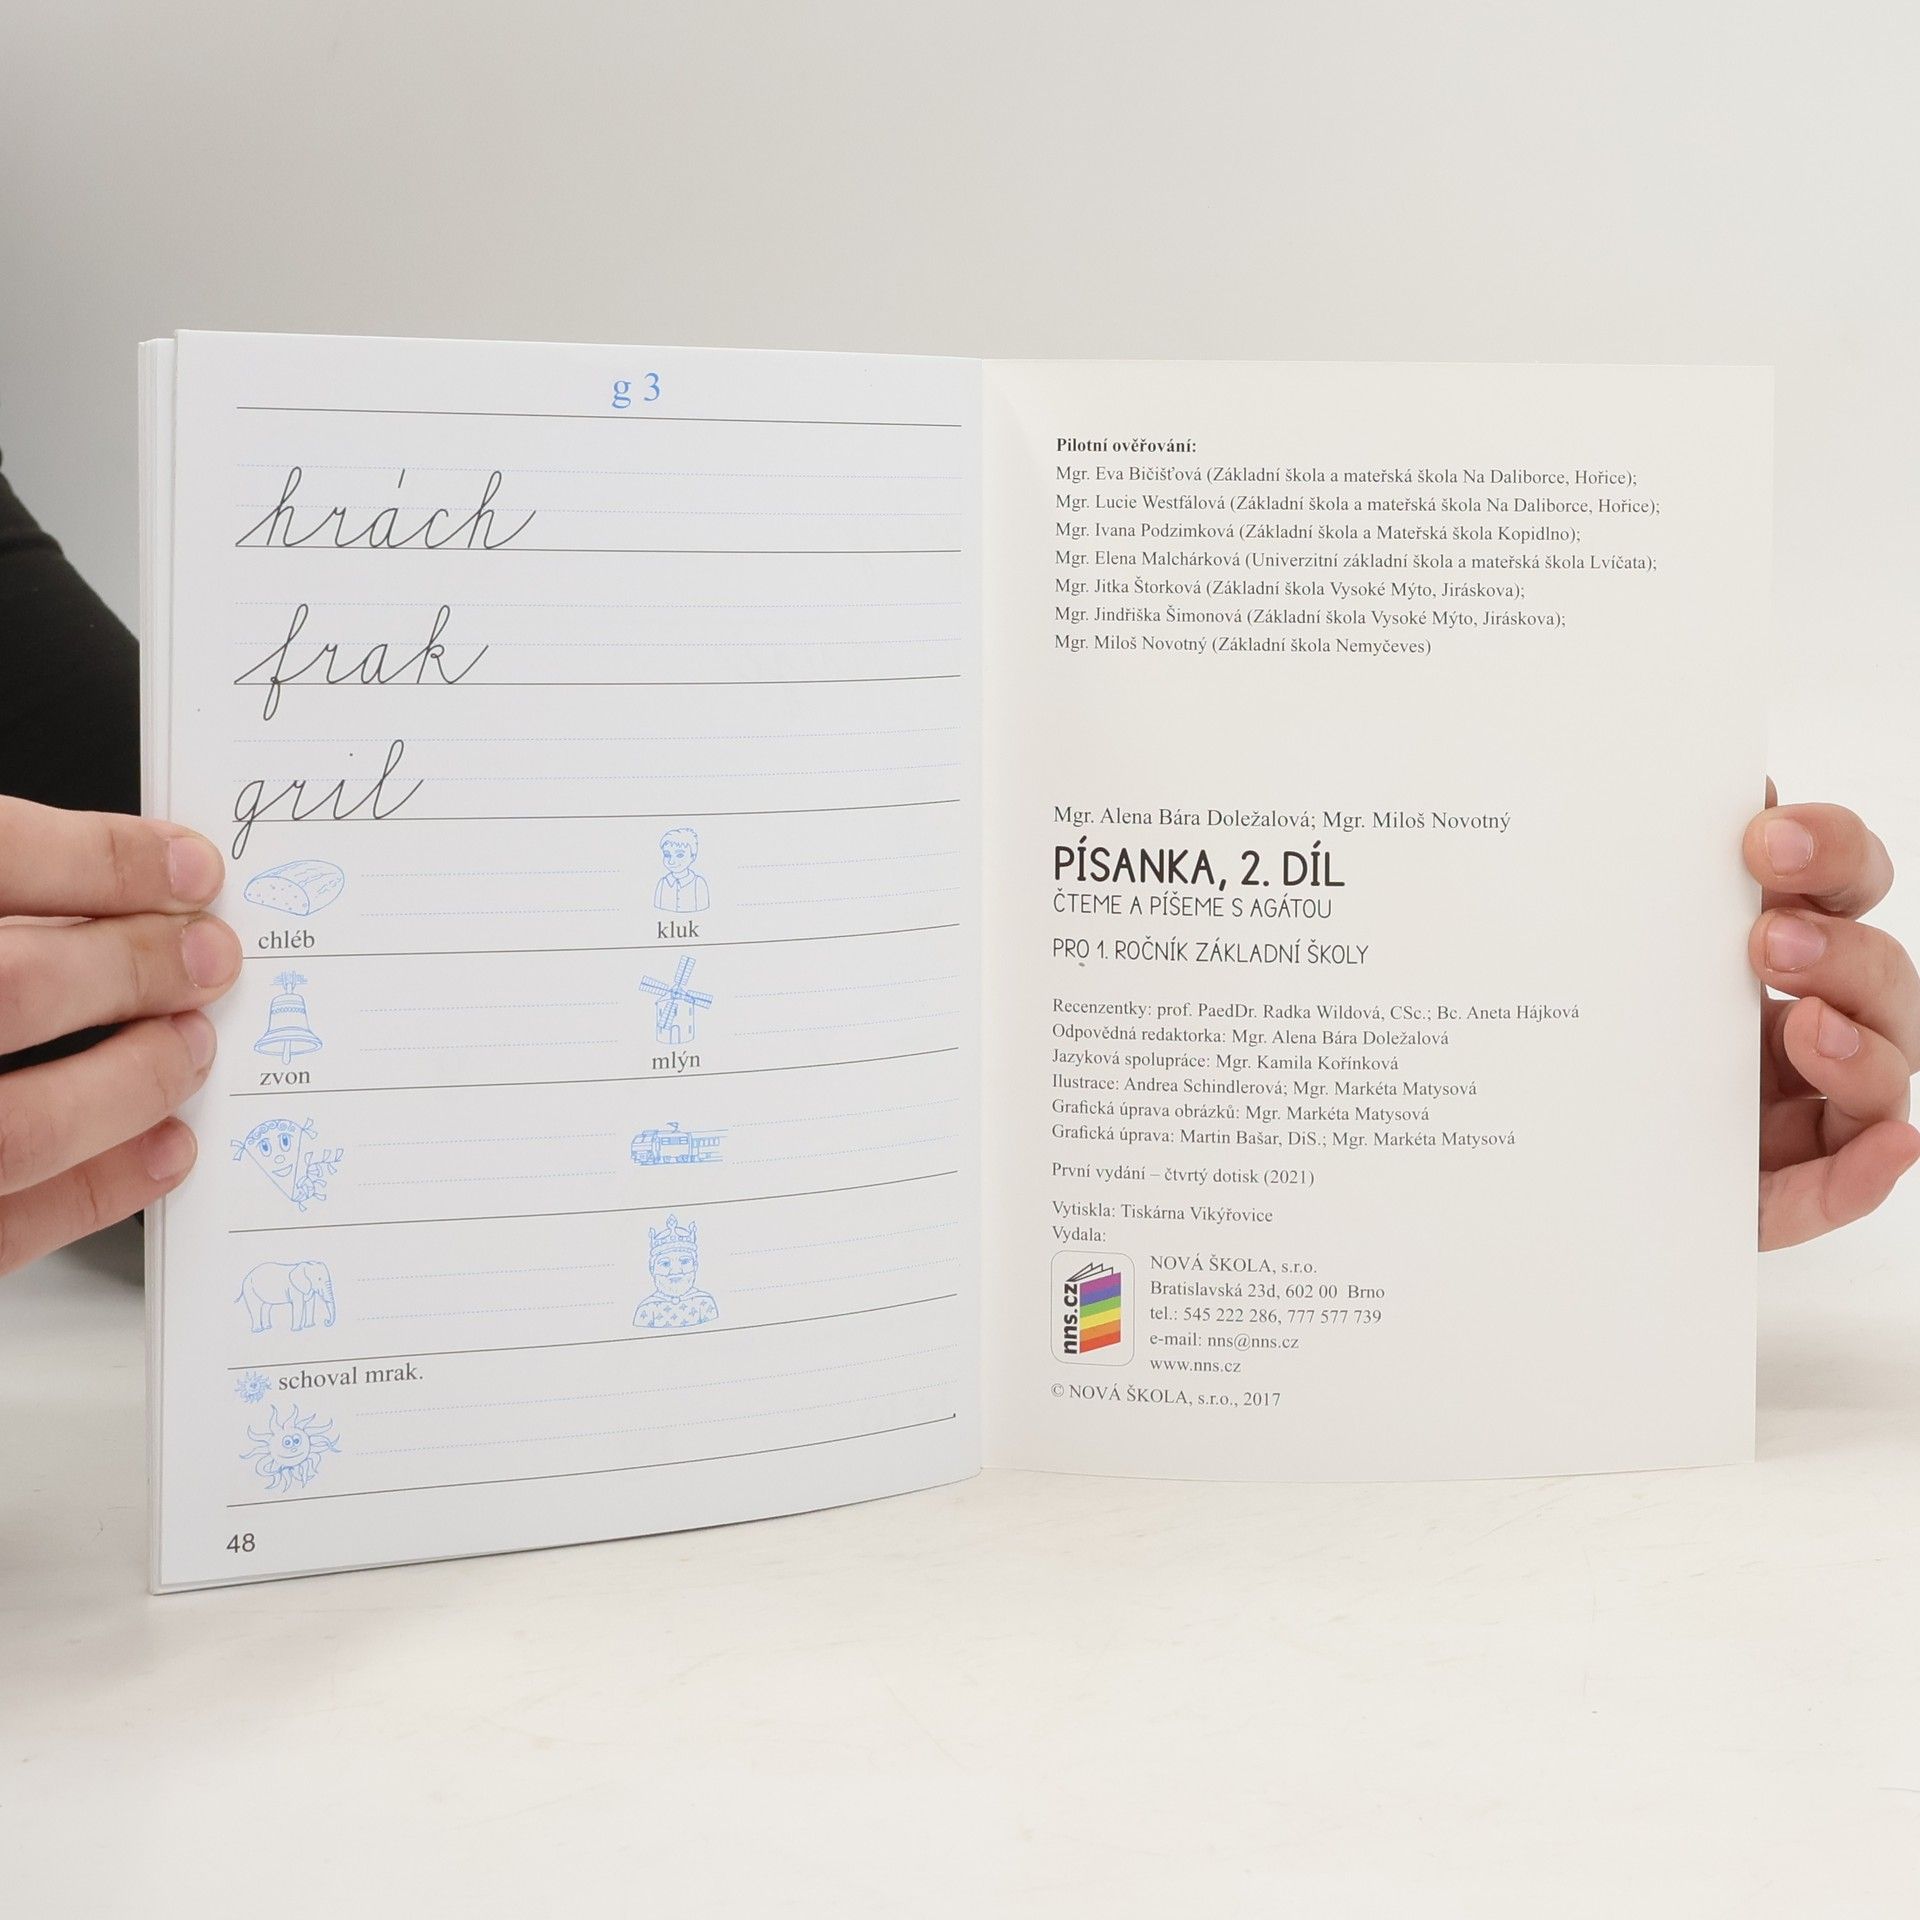 g 3
hrách
frak
gril
chléb
kluk
zvon
mlýn
schoval mrak.
48
Pilotní ověřování:
Mgr. Eva Bičišťová (Základní škola a mateřská škola Na Daliborce, Hořice);
Mgr. Lucie Westfálová (Základní škola a mateřská škola Na Daliborce, Hořice);
Mgr. Ivana Podzimková (Základní škola a Mateřská škola Kopidlno);
Mgr. Elena Malchárková (Univerzitní základní škola a mateřská škola Lvíčata);
Mgr. Jitka Štorková (Základní škola Vysoké Mýto, Jiráskova);
Mgr. Jindřiška Šimonová (Základní škola Vysoké Mýto, Jiráskova);
Mgr. Miloš Novotný (Základní škola Nemyčeves)
Mgr. Alena Bára Doležalová; Mgr. Miloš Novotný
PÍSANKA, 2. DÍL
ČTEME A PÍŠEME S AGÁTOU
PRO 1. ROČNÍK ZÁKLADNÍ ŠKOLY
Recenzentky: prof. PaedDr. Radka Wildová, CSc.; Bc. Aneta Hájková
Odpovědná redaktorka: Mgr. Alena Bára Doležalová
Jazyková spolupráce: Mgr. Kamila Kořínková
Ilustrace: Andrea Schindlerová; Mgr. Markéta Matysová
Grafická úprava obrázků: Mgr. Markéta Matysová
Grafická úprava: Martin Bašar, DiS.; Mgr. Markéta Matysová
První vydání – čtvrtý dotisk (2021)
Vytiskla: Tiskárna Vikýřovice
Vydala:
nns.cz
NOVÁ ŠKOLA, s.r.o.
Bratislavská 23d, 602 00 Brno
tel.: 545 222 286, 777 577 739
e-mail: nns@nns.cz
www.nns.cz
© NOVÁ ŠKOLA, s.r.o., 2017